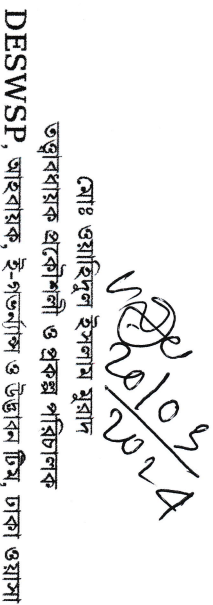 20/03
2024
মোঃ ওয়াহিদুল ইসলাম মুরাদ
তত্ত্বাবধায়ক প্রকৌশলী ও প্রকল্প পরিচালক
DESWSP, আহবায়ক, ই-গভর্ন্যান্স ও উদ্ভাবন টিম, ঢাকা ওয়াসা